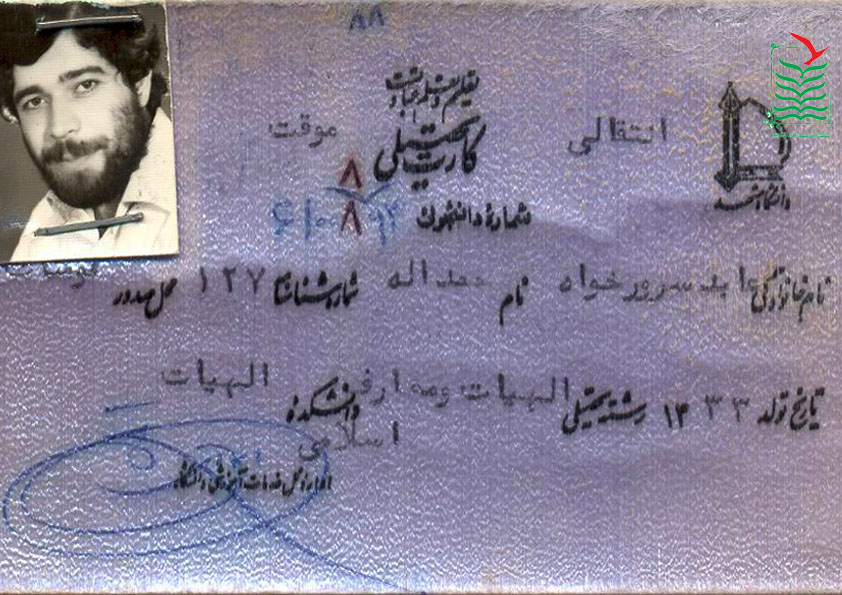 ۸۸
تعلیم و تعلم عبادت است
انتقالی کارت تحصیلی موقت
شماره دانشجوئی
نام خانوادگی عابد سرورخواه نام حمداله شماره شناسنامه ۱۲۷ محل صدور
تاریخ تولد ۱۳۳۳ رشته تحصیلی الهیات ومعارف اسلامی دانشکده الهیات
اداره کل خدمات آموزشی دانشگاه